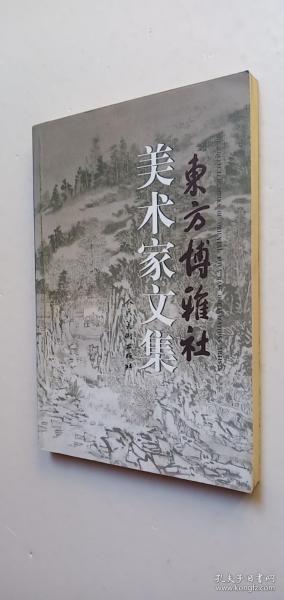 東方博雅社
美术家文集
人民美術出版社
孔夫子旧书网
www.kongfz.com